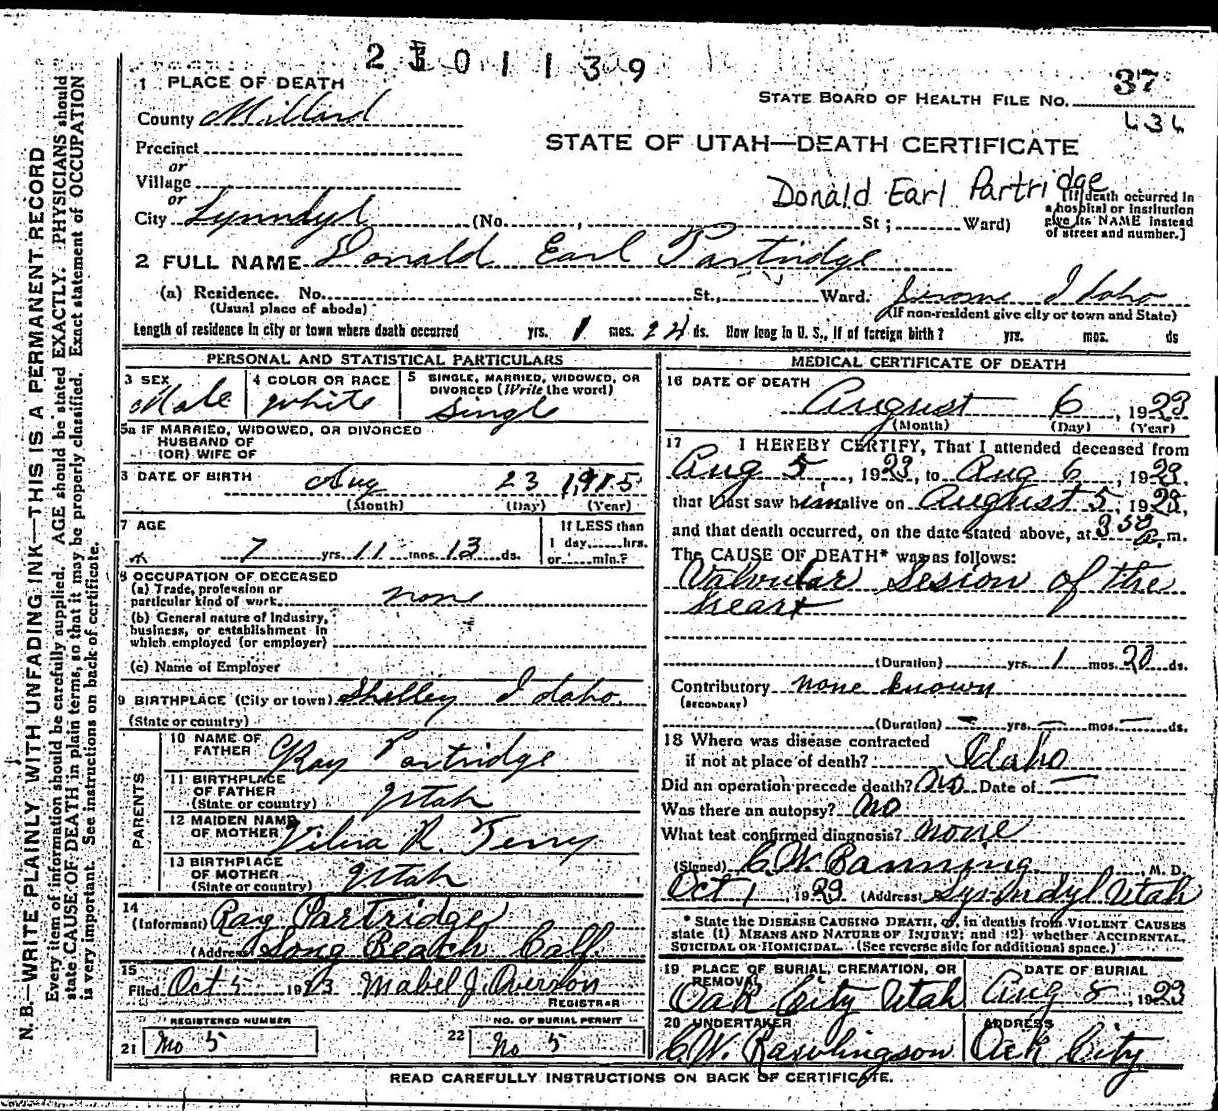 2 3 0 1 1 3 9
1 PLACE OF DEATH
County Millard
STATE BOARD OF HEALTH FILE NO. 37
434
STATE OF UTAH—DEATH CERTIFICATE
Precinct
or
Village
or
Donald Earl Partridge
City Lynndyl (No. , St; Ward)
[If death occurred in
a hospital or institution
give its NAME instead
of street and number.]
2 FULL NAME Donald Earl Partridge
(a) Residence. No. St., Ward. Jerome Idaho
(Usual place of abode) (If non-resident give city or town and State)
Length of residence in city or town where death occurred yrs. 1 mos. 24 ds. How long in U. S., if of foreign birth? yrs. mos. ds
PERSONAL AND STATISTICAL PARTICULARS
3 SEX Male
4 COLOR OR RACE white
5 SINGLE, MARRIED, WIDOWED, OR
DIVORCED (Write the word)
Single
5a IF MARRIED, WIDOWED, OR DIVORCED
HUSBAND OF
(OR) WIFE OF
6 DATE OF BIRTH Aug 23 1915
(Month) (Day) (Year)
7 AGE 7 yrs. 11 mos. 13 ds.
If LESS than
1 day, hrs.
or min.?
8 OCCUPATION OF DECEASED
(a) Trade, profession or
particular kind of work none
(b) General nature of Industry,
business, or establishment in
which employed (or employer)
(c) Name of Employer
9 BIRTHPLACE (City or town) Shelley Idaho.
(State or country)
PARENTS
10 NAME OF
FATHER Ray Partridge
11 BIRTHPLACE
OF FATHER
(State or country) Utah
12 MAIDEN NAME
OF MOTHER Vilna R. Terry
13 BIRTHPLACE
OF MOTHER
(State or country) Utah
14
(Informant) Ray Partridge
(Address) Long Beach Calf.
15
Filed Oct 5 1923 Mabel J. Overson
REGISTRAR
REGISTERED NUMBER
21 No 5
NO. OF BURIAL PERMIT
22 No 5
MEDICAL CERTIFICATE OF DEATH
16 DATE OF DEATH
August 6, 1923
(Month) (Day) (Year)
17 I HEREBY CERTIFY, That I attended deceased from
Aug 5, 1923, to Aug 6, 1923.
that I last saw him alive on August 5, 1923,
and that death occurred, on the date stated above, at 3 50 a. m.
The CAUSE OF DEATH* was as follows:
Valvular Lesion of the
heart
(Duration) yrs. 1 mos. 20 ds.
Contributory none known
(SECONDARY)
(Duration) — yrs. — mos. — ds.
18 Where was disease contracted
if not at place of death? Idaho
Did an operation precede death? no Date of —
Was there an autopsy? no
What test confirmed diagnosis? none
(Signed) C.W. Banning, M. D.
Oct 1, 1923 (Address) Lynndyl Utah
* State the DISEASE CAUSING DEATH, or, in deaths from VIOLENT CAUSES
state (1) MEANS AND NATURE OF INJURY; and (2) whether ACCIDENTAL,
SUICIDAL OR HOMICIDAL. (See reverse side for additional space.)
19 PLACE OF BURIAL, CREMATION, OR
REMOVAL
Oak City Utah
DATE OF BURIAL
Aug 8, 1923
20 UNDERTAKER
C.W. Rawlingson
ADDRESS
Oak City
READ CAREFULLY INSTRUCTIONS ON BACK OF CERTIFICATE.
N. B.—WRITE PLAINLY WITH UNFADING INK—THIS IS A PERMANENT RECORD
Every item of information should be carefully supplied. AGE should be stated EXACTLY. PHYSICIANS should
state CAUSE OF DEATH in plain terms, so that it may be properly classified. Exact statement of OCCUPATION
is very important. See instructions on back of certificate.